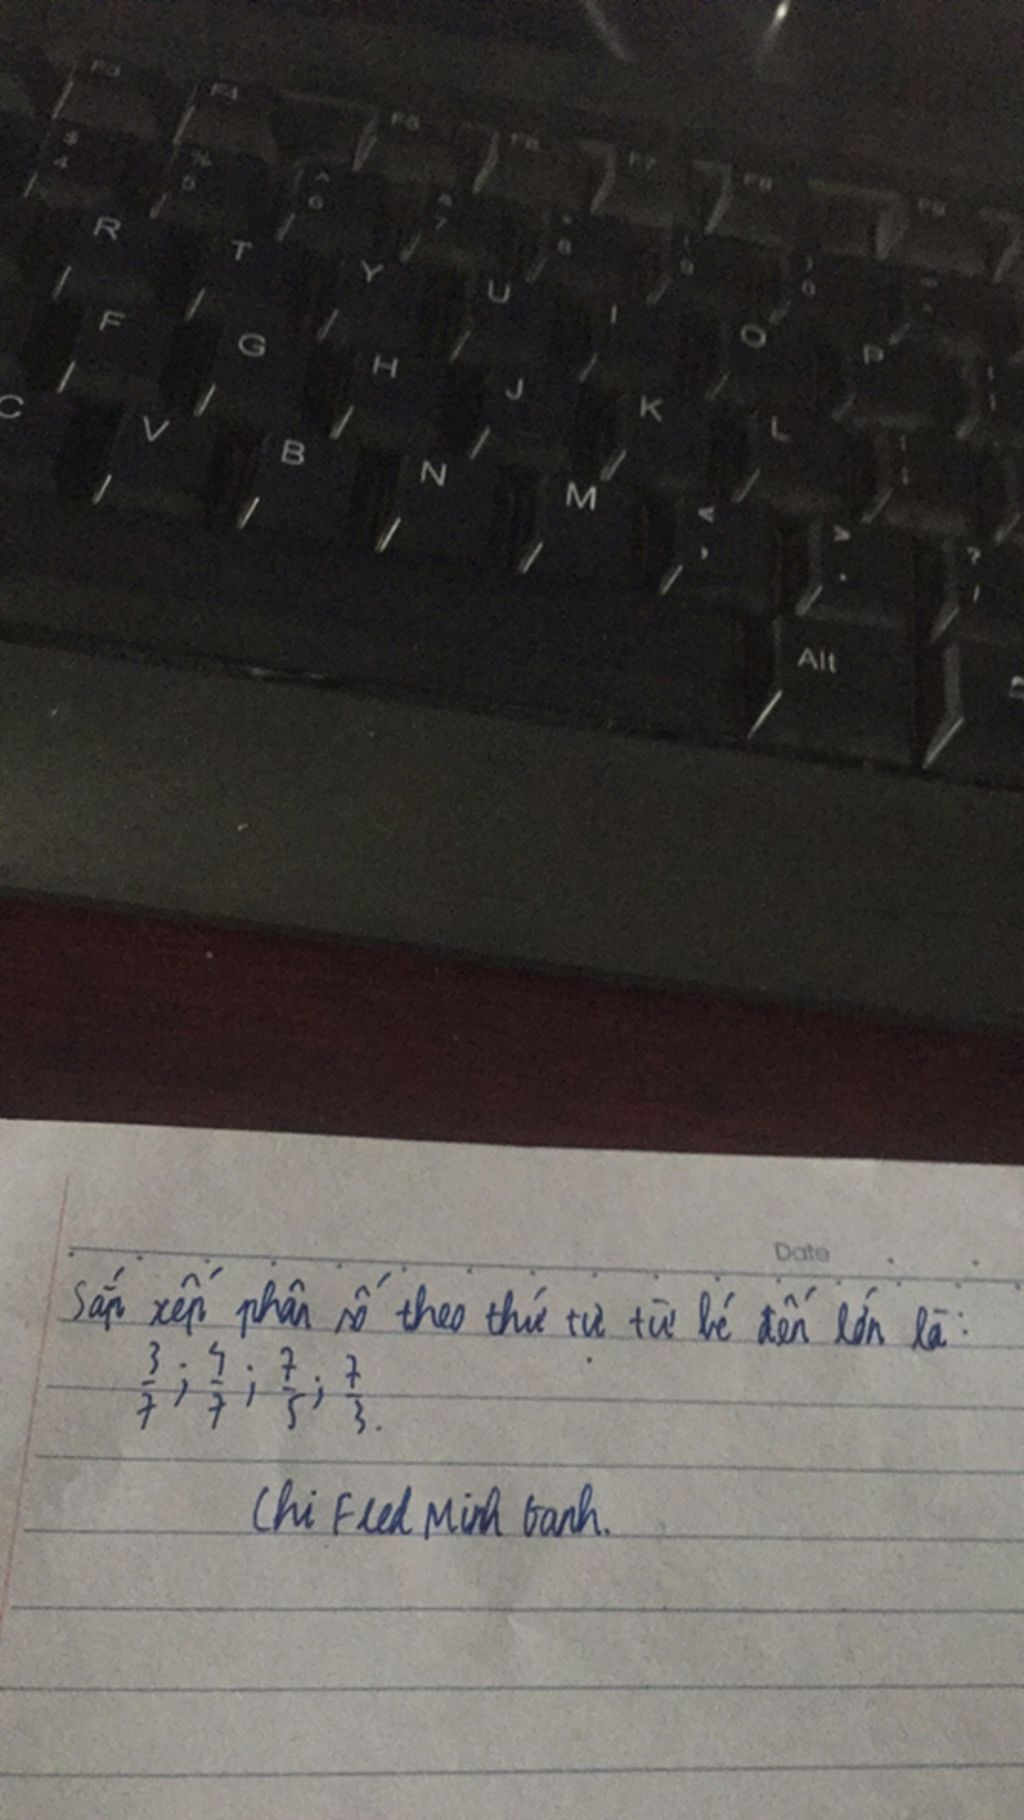 F3 F4 F5 F6 F7 F8 F9
$ 4 % 5 ^ 6 & 7 * 8 ( 9 ) 0
R T Y U I O P
F G H J K L
C V B N M < , > . ? /
Alt
Date
Sắp xếp phân số theo thứ tự từ bé đến lớn là:
3/7; 4/7; 7/5; 7/3.
Chi Fled Minh Oanh.